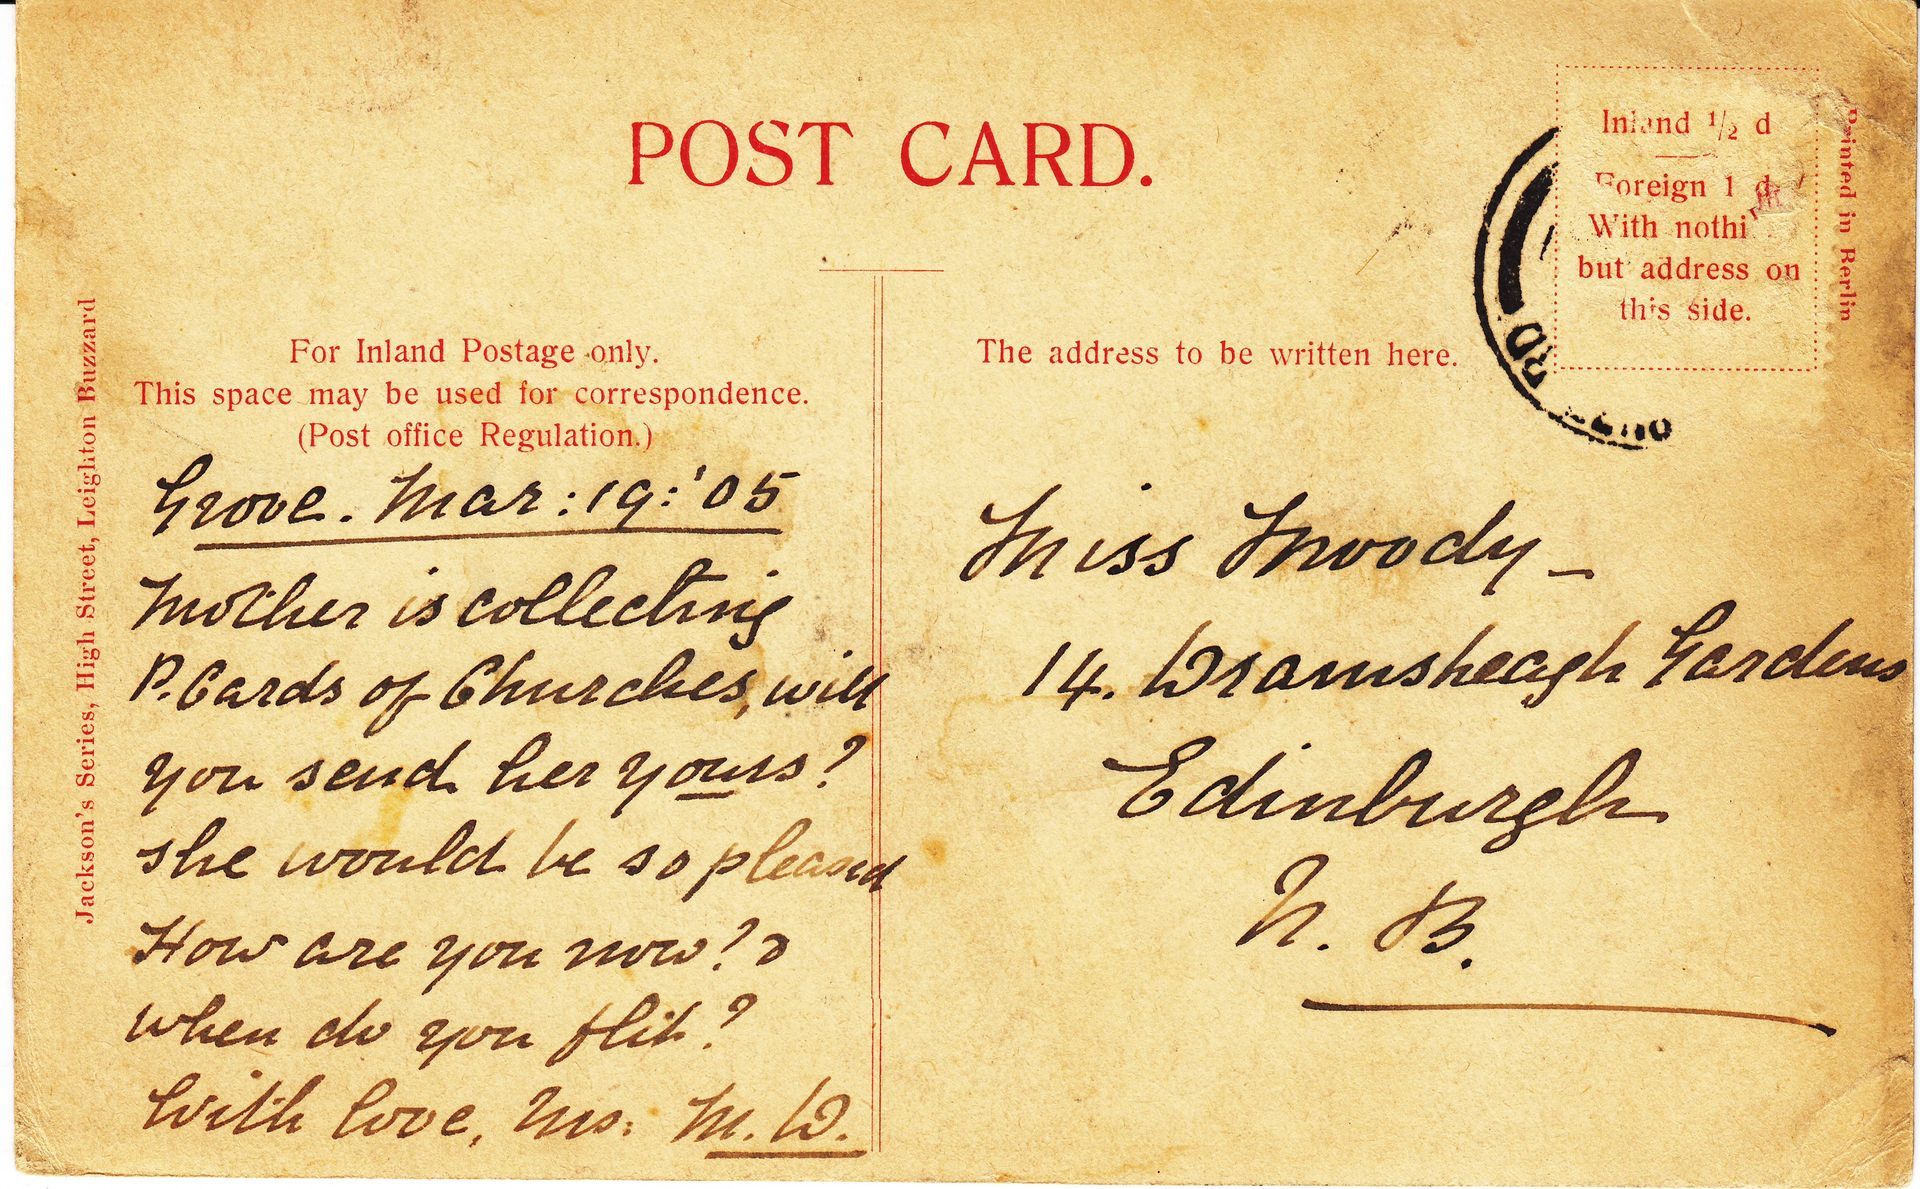 POST CARD.
Inland 1/2 d
Foreign 1 d
With nothi
but address on
this side.
Printed in Berlin
Jackson's Series, High Street, Leighton Buzzard
For Inland Postage only.
This space may be used for correspondence.
(Post office Regulation.)
Grove. Mar: 19: '05
Mother is collecting
P. Cards of Churches, will
you send her yours?
she would be so pleased
How are you now? &
when do you flit?
With love, Ms: M. D.
The address to be written here.
Miss Moody –
14. Dramsheagh Gardens
Edinburgh
N. B.
RD
BUZZ